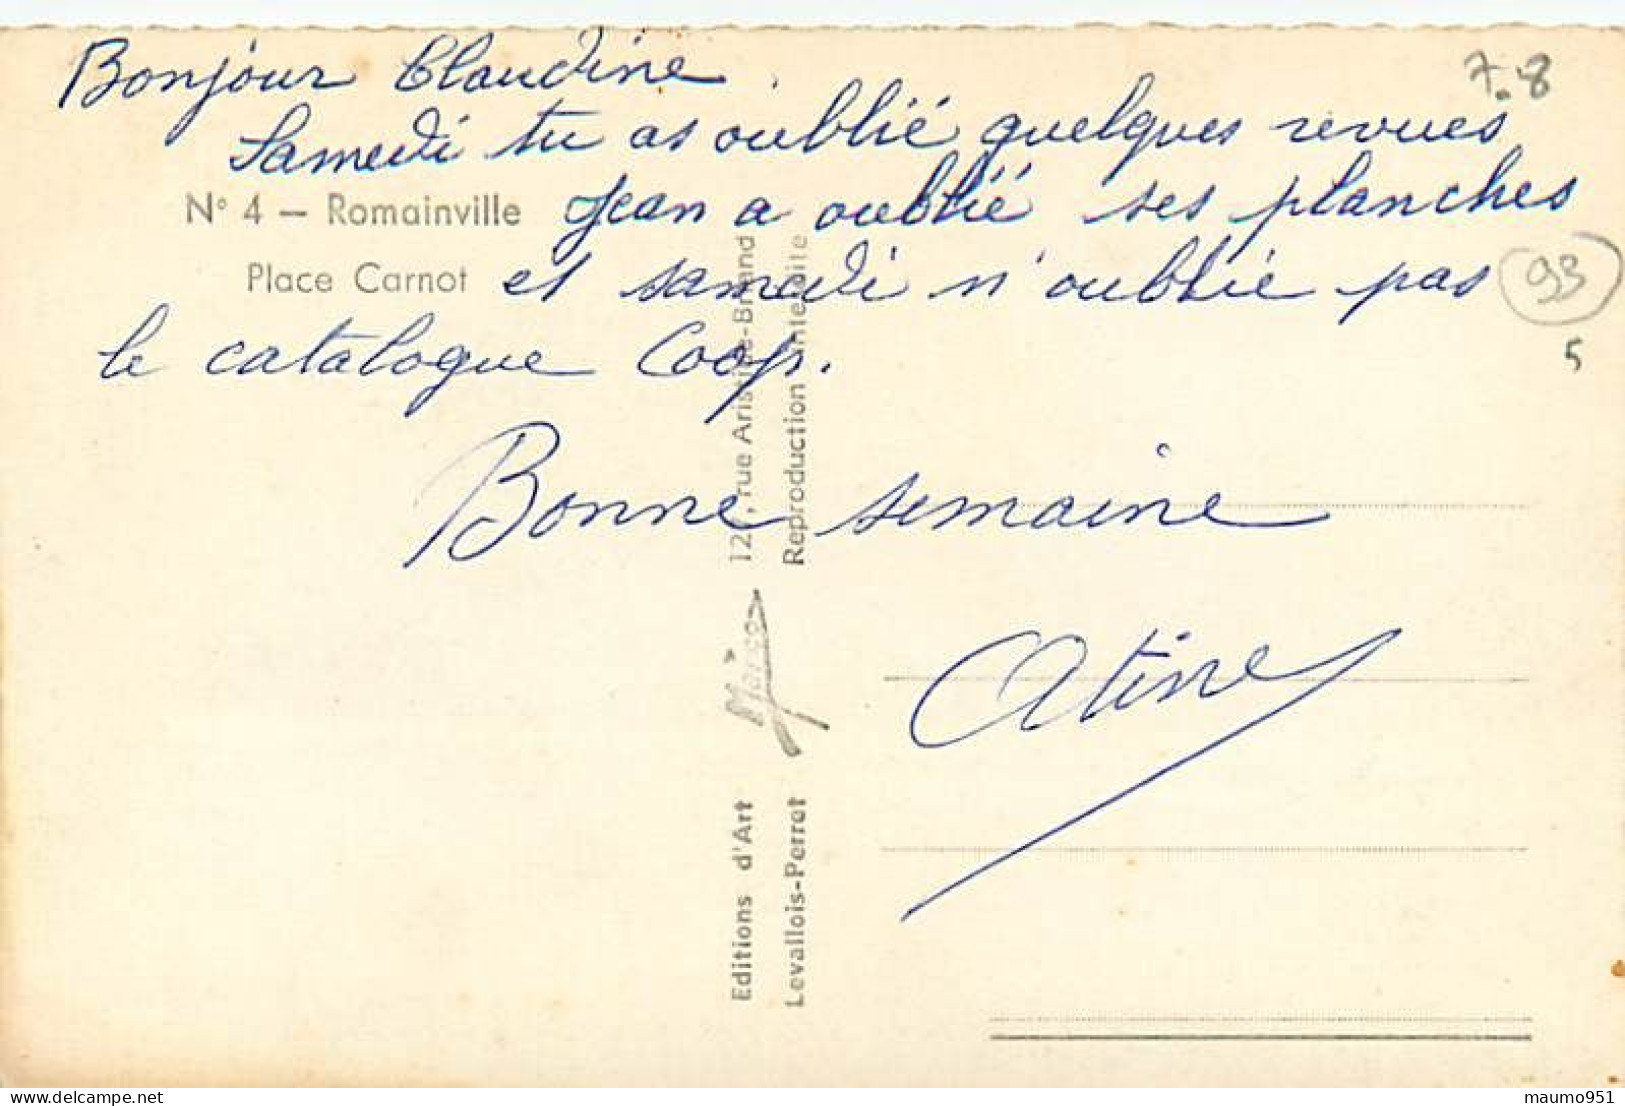 Bonjour Claudine
7.8
Samedi tu as oublié quelques revues
N° 4 – Romainville
Jean a oublié ses planches
Place Carnot
et samedi n'oublie pas
93
le catalogue Coop.
5
Bonne semaine
Editions d'Art
127, rue Aristide-Briand
Levallois-Perret
Reproduction interdite
maumo951